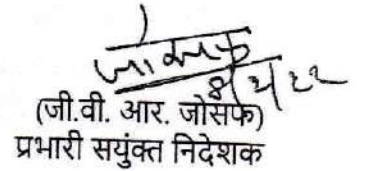 जोसफ
8/2/22
(जी.वी. आर. जोसफ)
प्रभारी सयुंक्त निदेशक